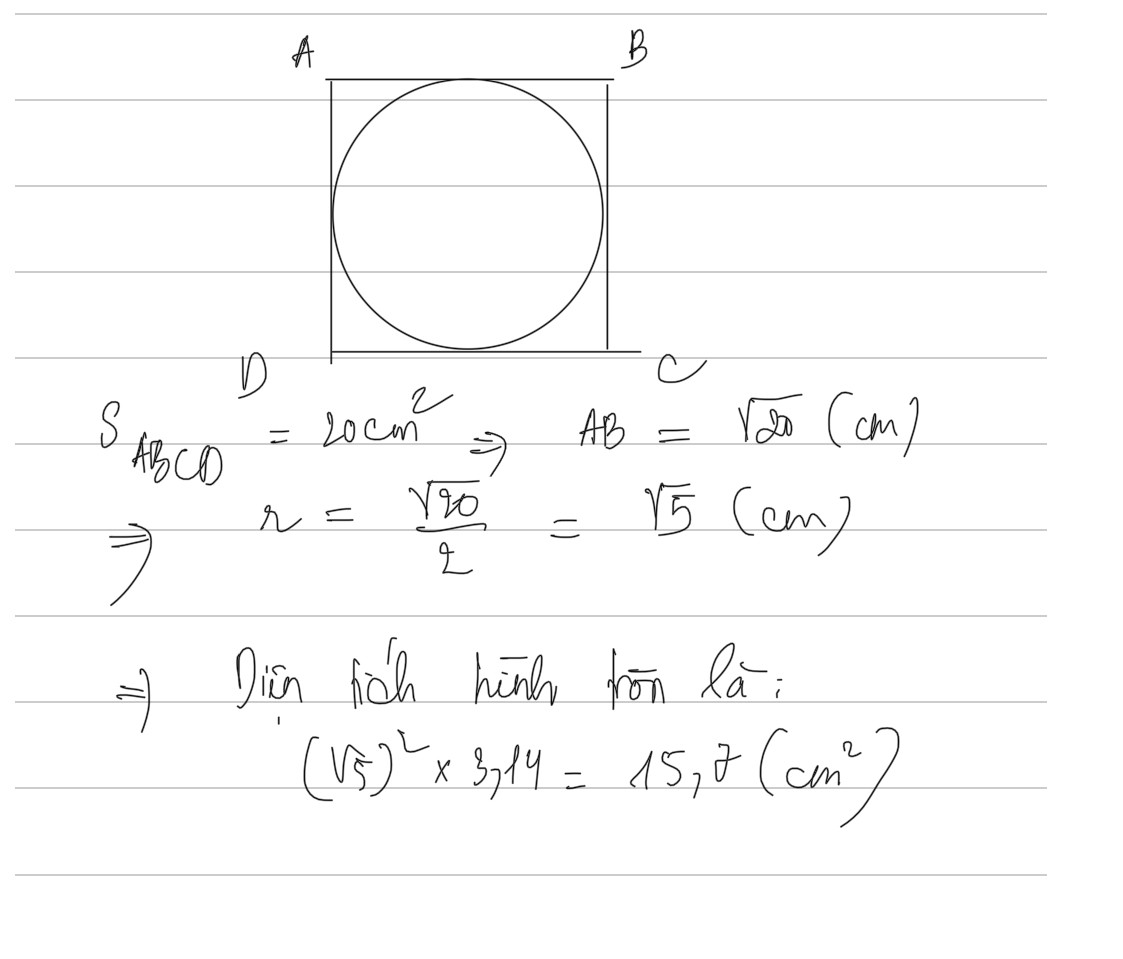 A B
D C
S_ABCD = 20cm² ⇒ AB = √20 (cm)
⇒ r = √20/2 = √5 (cm)
⇒ Diện tích hình tròn là:
(√5)² × 3,14 = 15,7 (cm²)